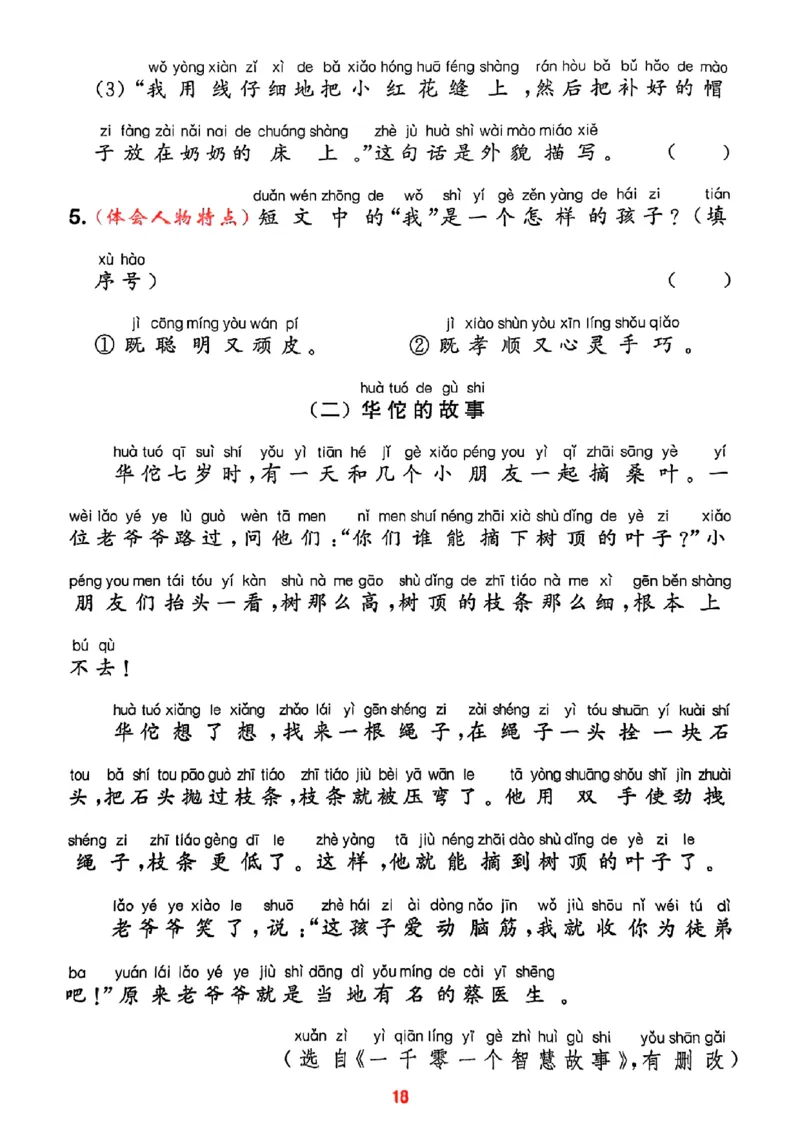 wǒ yòng xiàn zǐ xì de bǎ xiǎo hóng huā féng shàng rán hòu bǎ bǔ hǎo de mào
(3)“我用线仔细地把小红花缝上,然后把补好的帽
zi fàng zài nǎi nai de chuáng shàng zhè jù huà shì wài mào miáo xiě
子放在奶奶的床上。”这句话是外貌描写。 ( )
duǎn wén zhōng de wǒ shì yí gè zěn yàng de hái zi tián
5.(体会人物特点)短文中的“我”是一个怎样的孩子?(填
xù hào
序号) ( )
jì cōng míng yòu wán pí jì xiào shùn yòu xīn líng shǒu qiǎo
①既聪明又顽皮。 ②既孝顺又心灵手巧。
huà tuó de gù shi
(二)华佗的故事
huà tuó qī suì shí yǒu yì tiān hé jǐ gè xiǎo péng you yì qǐ zhāi sāng yè yí
华佗七岁时,有一天和几个小朋友一起摘桑叶。一
wèi lǎo yé ye lù guò wèn tā men nǐ men shuí néng zhāi xià shù dǐng de yè zi xiǎo
位老爷爷路过,问他们:“你们谁能摘下树顶的叶子?”小
péng you men tái tóu yí kàn shù nà me gāo shù dǐng de zhī tiáo nà me xì gēn běn shàng
朋友们抬头一看,树那么高,树顶的枝条那么细,根本上
bú qù
不去!
huà tuó xiǎng le xiǎng zhǎo lái yì gēn shéng zi zài shéng zi yì tóu shuān yí kuài shí
华佗想了想,找来一根绳子,在绳子一头拴一块石
tou bǎ shí tou pāo guò zhī tiáo zhī tiáo jiù bèi yā wān le tā yòng shuāng shǒu shǐ jìn zhuài
头,把石头抛过枝条,枝条就被压弯了。他用双手使劲拽
shéng zi zhī tiáo gèng dī le zhè yàng tā jiù néng zhāi dào shù dǐng de yè zi le
绳子,枝条更低了。这样,他就能摘到树顶的叶子了。
lǎo yé ye xiào le shuō zhè hái zi ài dòng nǎo jīn wǒ jiù shōu nǐ wéi tú dì
老爷爷笑了,说:“这孩子爱动脑筋,我就收你为徒弟
ba yuán lái lǎo yé ye jiù shì dāng dì yǒu míng de cài yī shēng
吧!”原来老爷爷就是当地有名的蔡医生。
xuǎn zì yì qiān líng yī gè zhì huì gù shi yǒu shān gǎi
(选自《一千零一个智慧故事》,有删改)
18